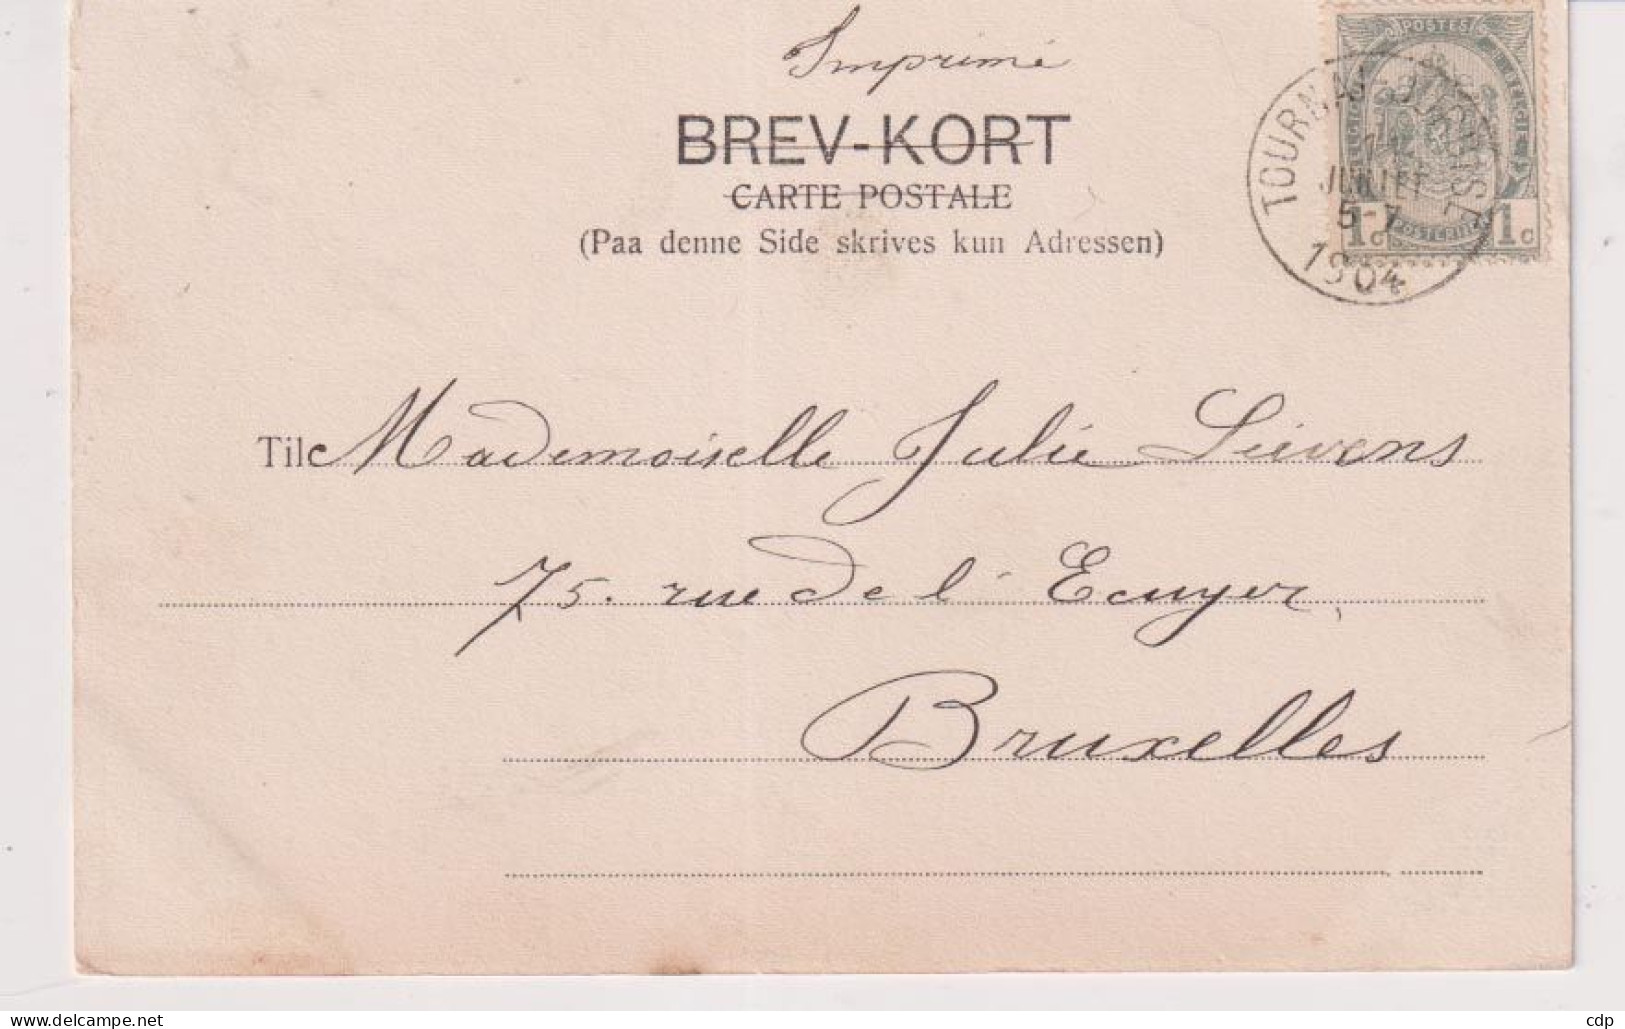 Imprimé
BREV-KORT
CARTE POSTALE
(Paa denne Side skrives kun Adressen)
POSTES
BELGIE BELGIQUE
1c 1c
TOURNAI
JUILLET
5-7
1904
Til Mademoiselle Julie Lievens
75. rue de l'Ecuyer,
Bruxelles
cdp
delcampe.net